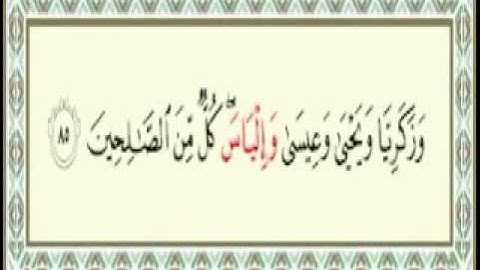 وَزَكَرِيَّا وَيَحْيَىٰ وَعِيسَىٰ وَإِلْيَاسَ ۖ كُلٌّ مِّنَ ٱلصَّـٰلِحِينَ ٨٥